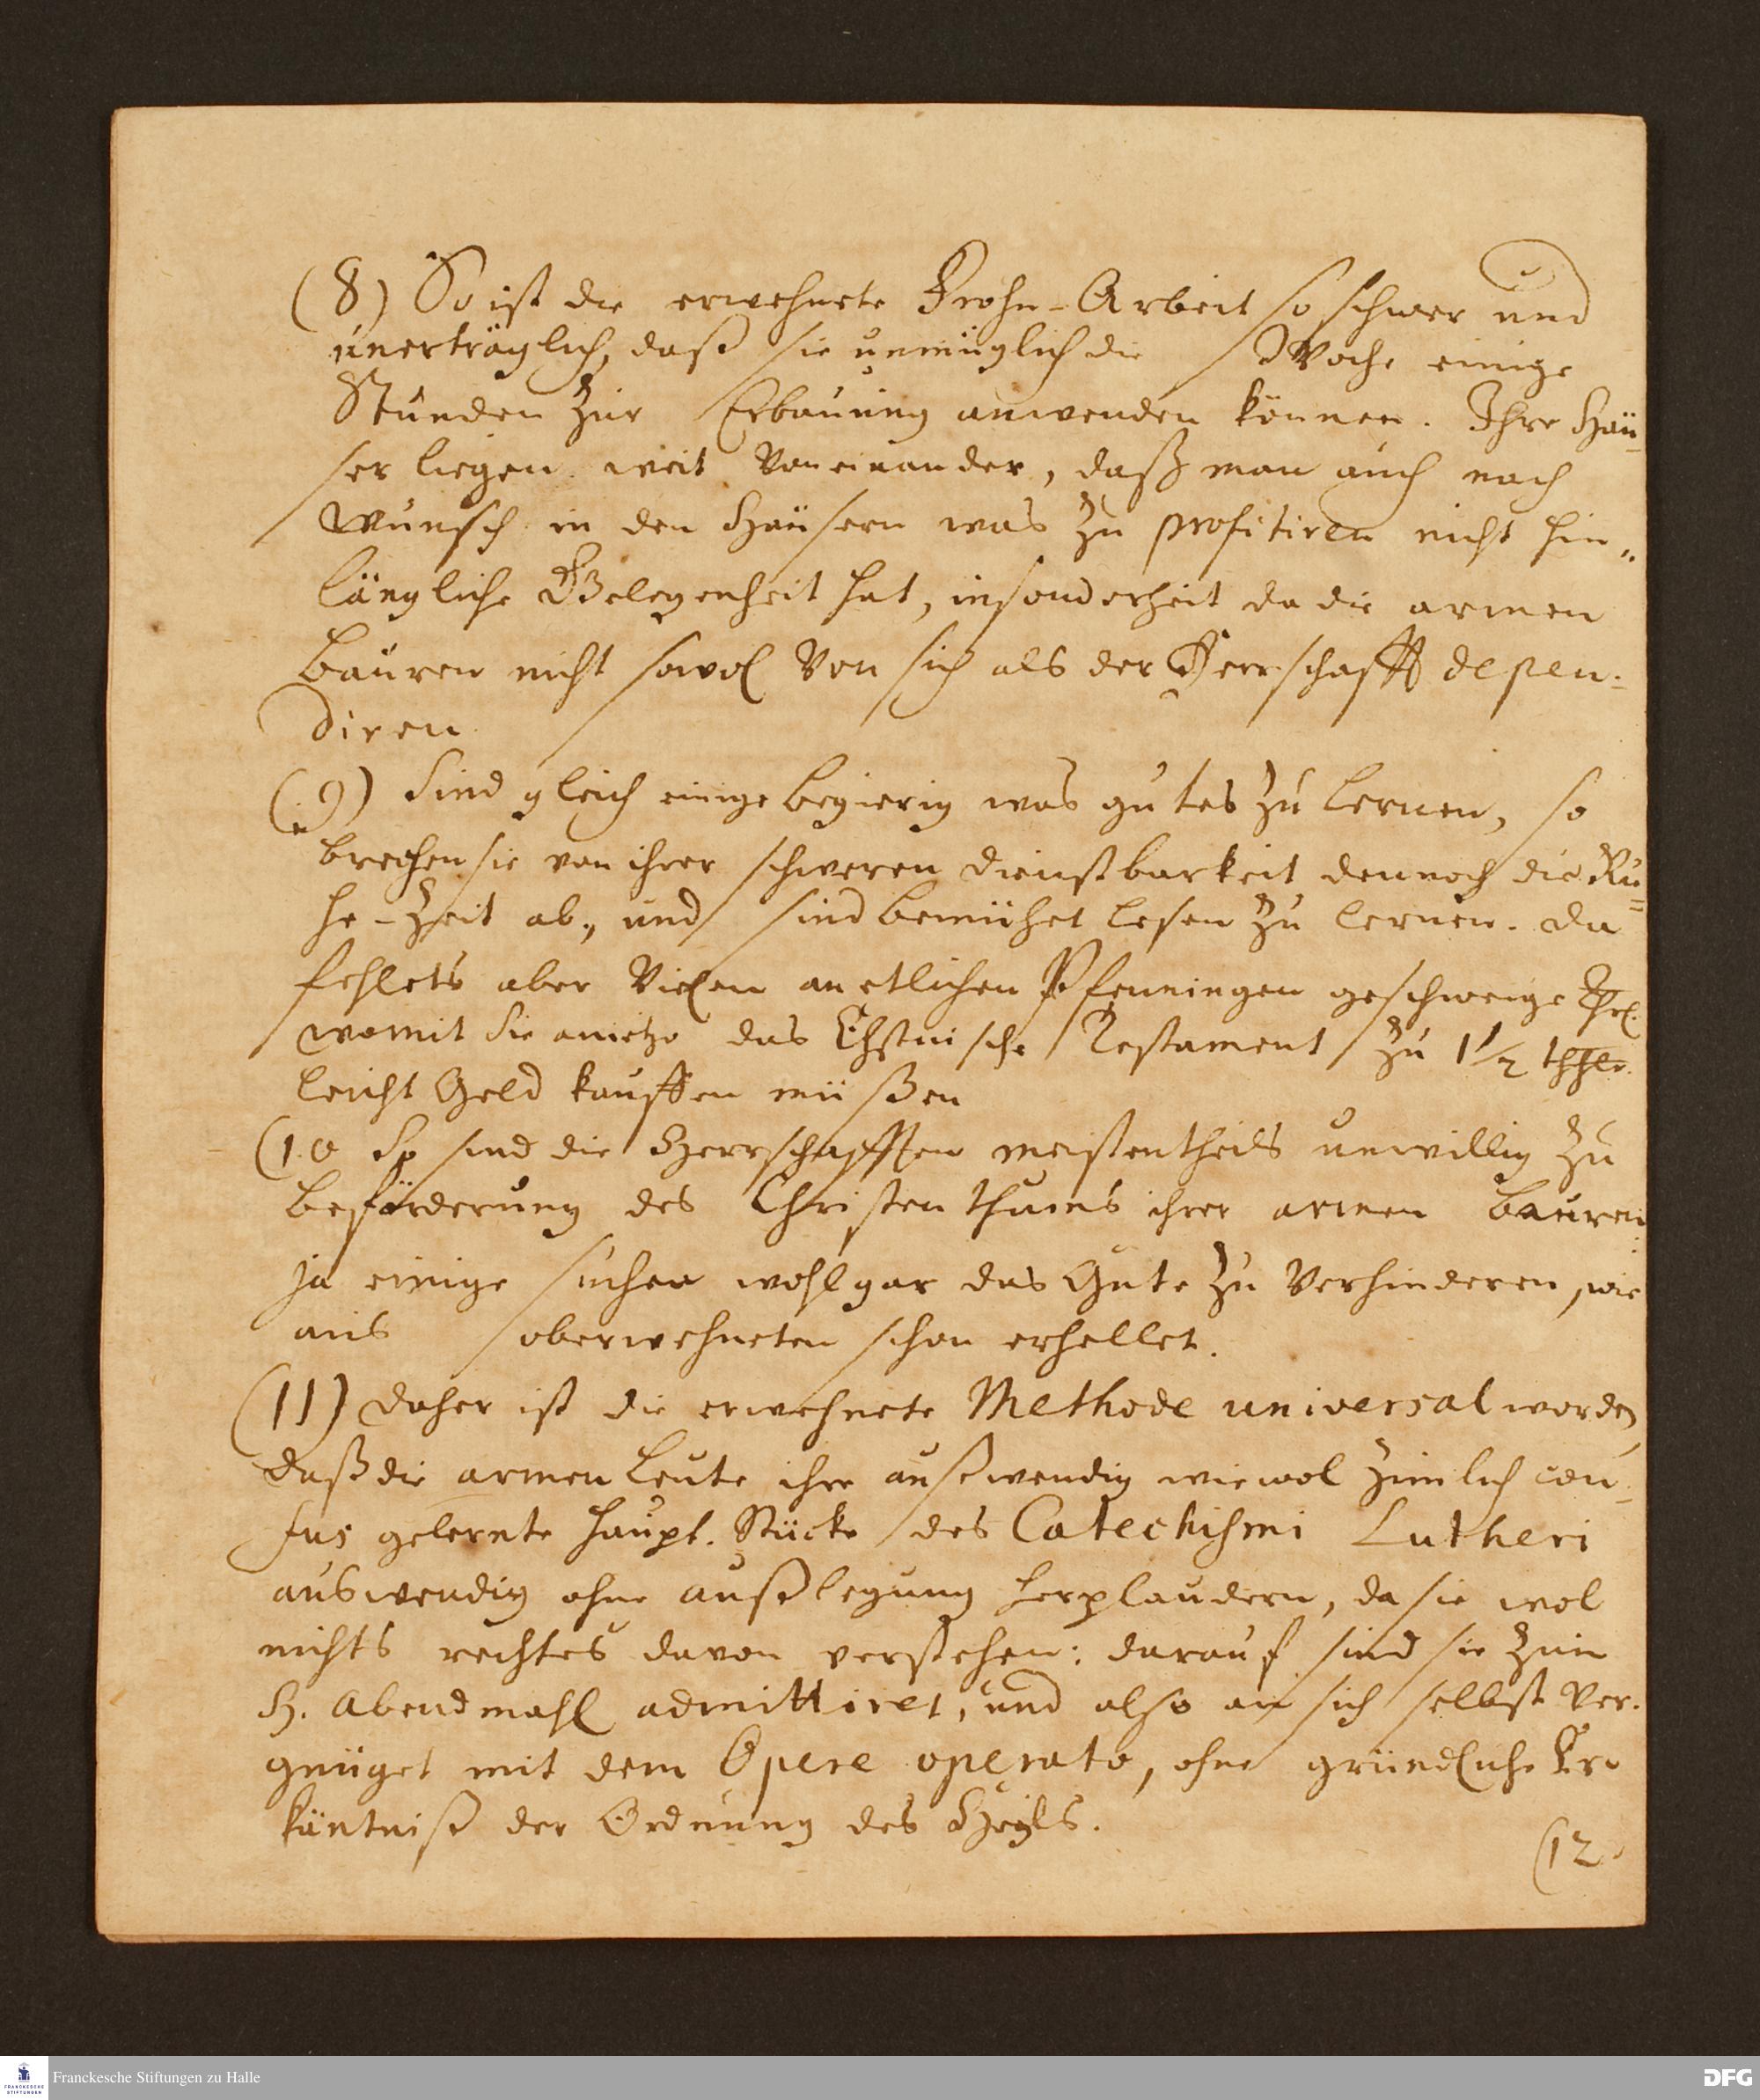 (8) So ist die erwehnete Frohn-Arbeit so schwer und
unerträglich, daß sie unmüglich die Woche einige
Stunden zur Erbauung anwenden können. Ihre Häu-
ser liegen weit von einander, daß man auch nach
Wunsch in den Häusern was zu profitiren nicht hin„
längliche Gelegenheit hat, insonderheit da die armen
Bauren nicht sowol von sich als der Herrschafft depen-
diren
(9) Sind gleich einige begierig was gutes zu lernen, so
brechen sie von ihrer schweren Dienstbarkeit dennoch die Ru=
he-Zeit ab, und sind bemühet lesen zu lernen. Da
fehlets aber vielen an etlichen Pfenningen geschweige Thl.
womit sie anietzo das Ehstnische Testament zu 1 1/2 thlr.
leicht Geld kauffen müßen
(10 So sind die Herrschafften meistentheils unwillig zu
Beförderung des Christenthums ihrer armen Bauren
ja einige suchen wohl gar das Gute zu verhinderen, wie
aus oberwehneten schon erhellet.
(11) Daher ist die erwehnete Methode universal worden
daß die armen Leute ihre außwendig wiewol zimlich con-
fus gelernte Haupt-Stücke des Catechismi Lutheri
auswendig ohne Außlegung herplaudern, da sie wol
nichts rechtes davon verstehen: darauf sind sie zum
H. Abendmahl admittiret, und also an sich selbst ver-
gnüget mit dem Opere operato, ohne gründliche Er-
käntniß der Ordnung des Heyls.
(12
Franckesche Stiftungen zu Halle
FRANCKESCHE STIFTUNGEN
DFG